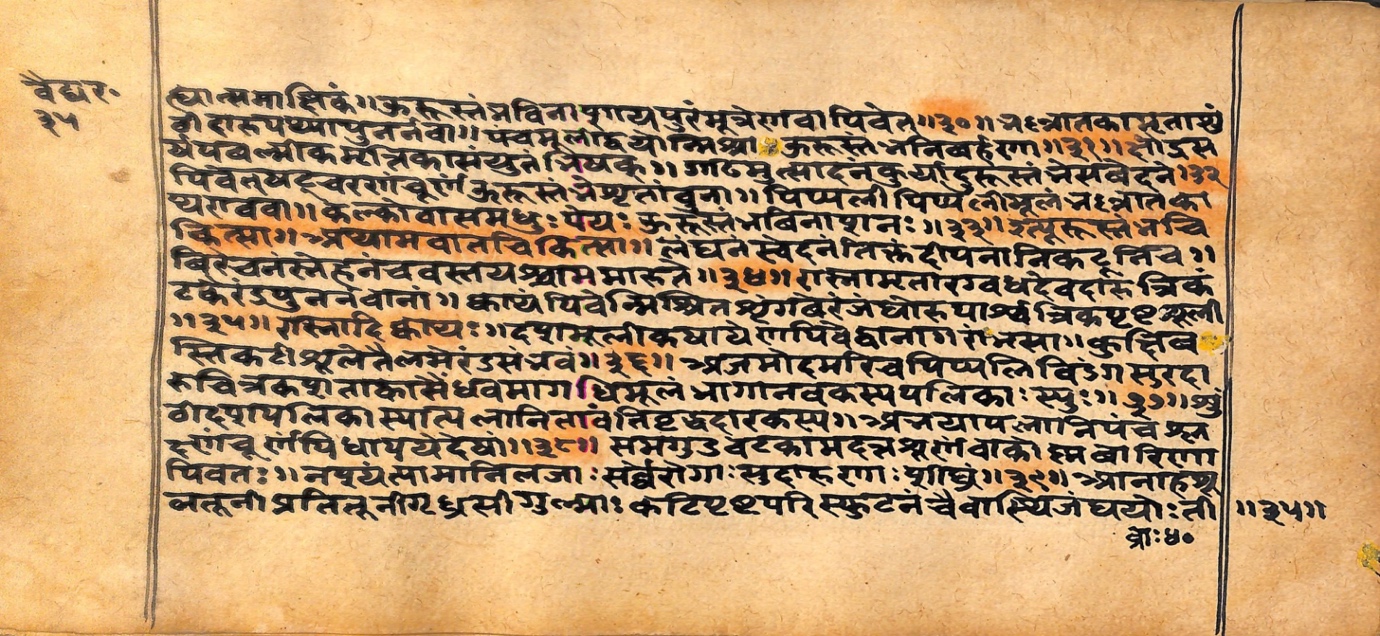 वैद्यर॰
३५
ध्यात्समाक्षिकं॥ऊरुस्तंभविनाशाय पुरंमूत्रेणवापिवेत॥३०॥भल्लातकामृताशुं
ठीदारुपथ्यापुनर्नवा॥पंचमूलीद्वयोन्मिश्रा ऊरुस्तंभनिबर्हणा॥३१॥क्षौद्रस
र्षपवल्मीकमृत्तिकासंयुतंभिषक्॥गाढमुत्सादनंकुर्यादुरुस्तंभेसवेदने॥३२
पिवेत् चूर्णं ऊरुस्तंभे बुना॥पिप्पलीपिप्पलीमूलंभल्लातका
थएववा॥कल्कोवासमधुःपेयःऊरुस्तंभविनाशनः॥३३॥इत्यूरुस्तंभचि
कित्सा॥अथामवातचिकित्सा॥लंघनंस्वेदनंतिक्तंदीपनानिकटूनिच॥
विरेचनंस्नेहनंचवस्तयश्चाममारुते॥३४॥रास्नामृतारग्वधदेवदारुत्रिकं
टकेरंडपुनर्नवानां॥क्वाथंपिवेन्मिश्रितशृंगवेरंजंघोरुपार्श्वत्रिकपृष्टशूली
॥३५॥रास्नादिक्वाथः॥दशमूलीकषायेणपिवेद्वानागरांभसा॥कुक्षिव
स्तिकटीशूलेतैलमेरंडसंभवं॥३६॥अजमोदमरिचपिप्पलिविडंगसुरदा
रुचित्रकशताह्वासैंधवमागधिमूलंभागानवकस्यपलिकाःस्युः॥३७॥शुं
ठीदशपलिकास्यात्पलानितावंतिवृद्धदारकस्य॥अभयापलानिपंचश्लक्
क्ष्णंचूर्णंविधापयेदेषां॥३८॥समगुडवटकामदन्नश्चूर्णंवाकोष्मवारिणा
पिवतः॥नश्यंत्यामानिलजाःसर्वरोगाःसुदारुणाःशीघ्रं॥३९॥आनाहशू
लतूनीप्रतितूनीगृध्रसीगुल्माः कटिपृष्टपरिस्फुटनंचैवास्थिजंघयोःती
व्रोः४०
॥३५॥